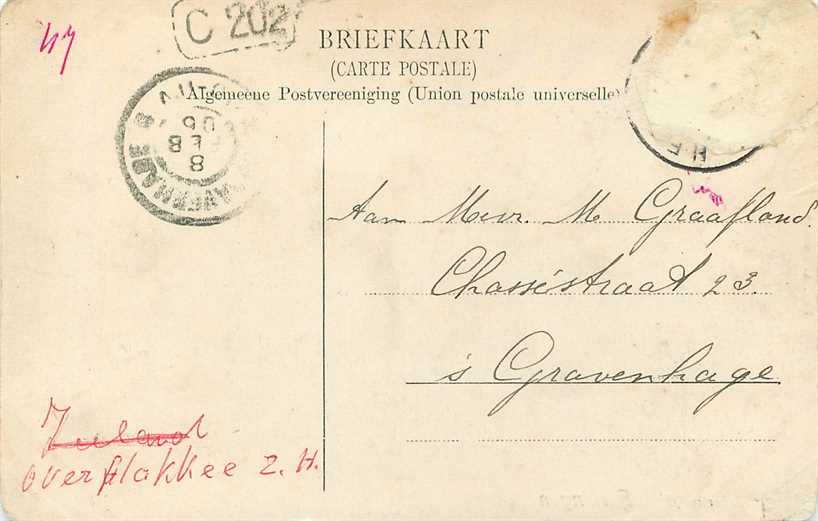 47
C 202
BRIEFKAART
(CARTE POSTALE)
Algemeene Postvereeniging (Union postale universelle)
8
FEB
06
Aan Mevr. M Graafland.
Chasséstraat 23.
's Gravenhage
Zeeland
overflakkee Z.H.